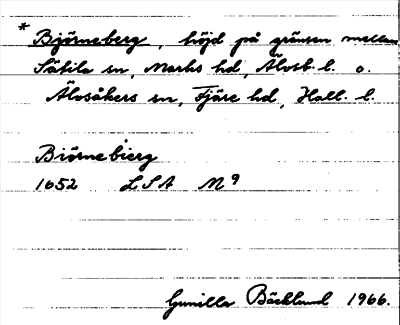 * Björneberg, höjd på gränsen mellan
Sätila sn, Marks hd, Älvsb. l. o.
Älvsåkers sn, Fjäre hd, Hall. l.
Biörnebierg
1652 LSA N9
Gunilla Bäcklund 1966.